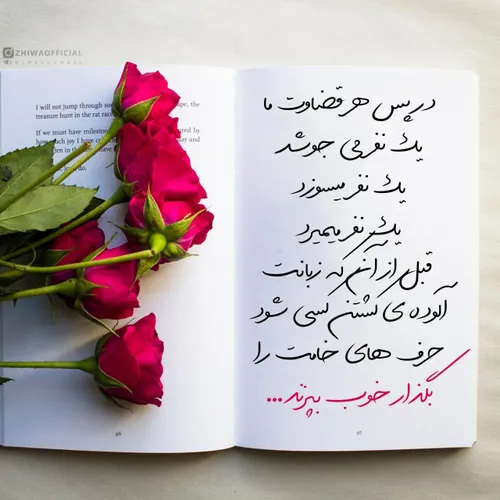 ZHIWAOFFICIAL
I will not jump through
the
treasure hunt in the rat race
If we must have
by
how much joy I have
and
در پس هر قضاوت ما
یک نفر می جوشد
یک نفر میسوزد
یک نفر میمیرد
قبل از آن که زبانت
آلوده ی کشتن کسی شود
حرف های خامت را
بگذار خوب بپزند...
96
97